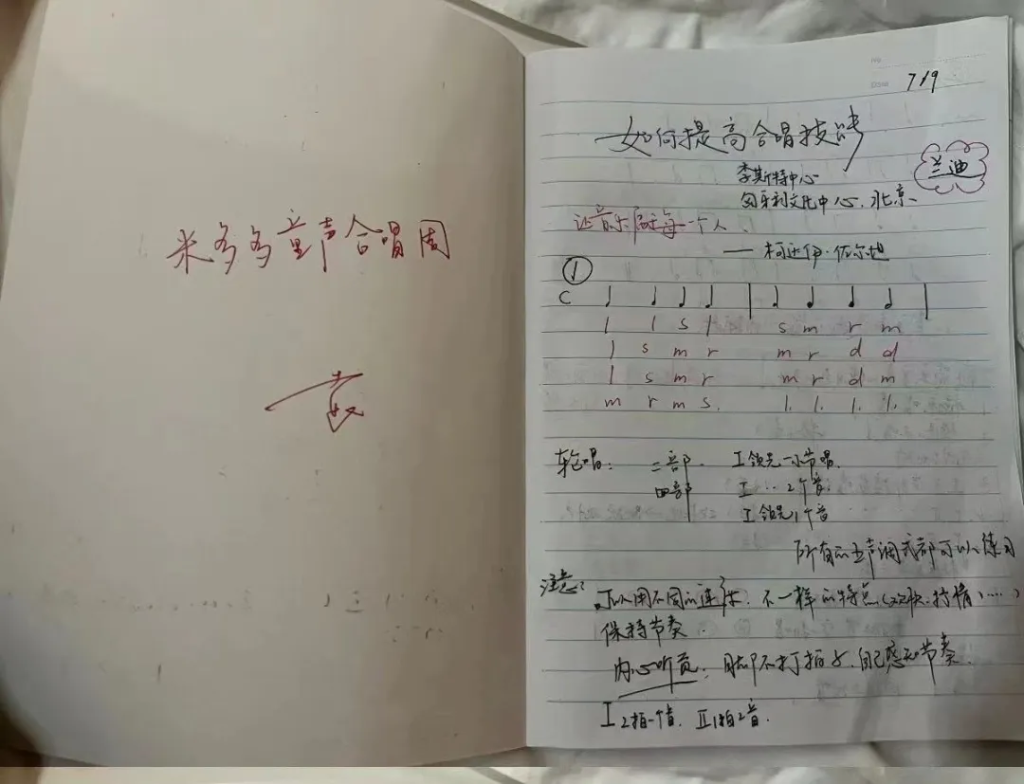 米多多童声合唱团
7/9
如何提高合唱技巧
李斯特中心
兰迪
匈牙利文化中心.北京
让音乐属于每一个人.
——柯达伊·佐尔坦
①
C
l l s l s m r m
l s m r m r d d
l s m r m r d m
m r m s. l. l. l. l.
轮唱: 二部. I领先一小节唱.
四部 I ‥ 2个音.
I领先1个音
所有的五声调式都可以练习
注意: 可以用不同的速度. 不一样的特点(欢快.抒情....)
保持节奏.
内心听觉. 脚不打拍子.自己感知节奏.
I 2拍一个音. II 1拍2音.